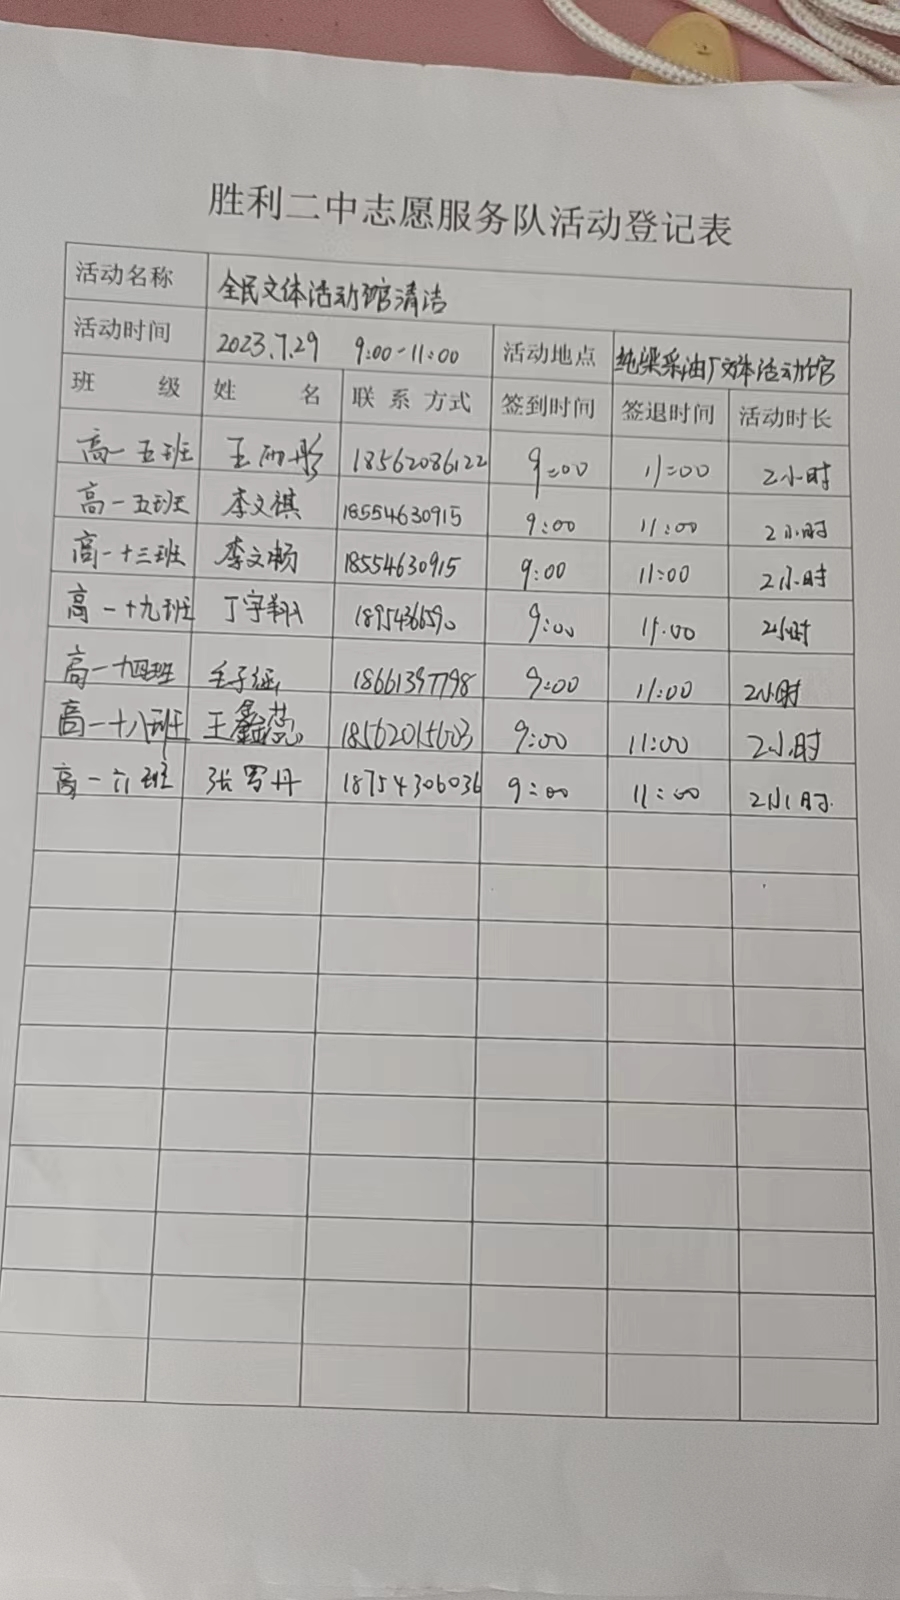 胜利二中志愿服务队活动登记表
活动名称 全民文体活动馆清洁
活动时间 2023.7.29 9:00-11:00 活动地点 纯梁采油厂文体活动馆
班 级 姓 名 联系方式 签到时间 签退时间 活动时长
高一五班 王雨彤 18562086122 9:00 11:00 2小时
高一五班 李文祺 18554630915 9:00 11:00 2小时
高一十三班 李文顺 18554630915 9:00 11:00 2小时
高一十九班 丁宇翔 9:00 11:00 2小时
高一十四班 毛子涵 18661397798 9:00 11:00 2小时
高一十八班 王鑫蕊 18562015603 9:00 11:00 2小时
高一六班 张罗丹 18754306036 9:00 11:00 2小时.